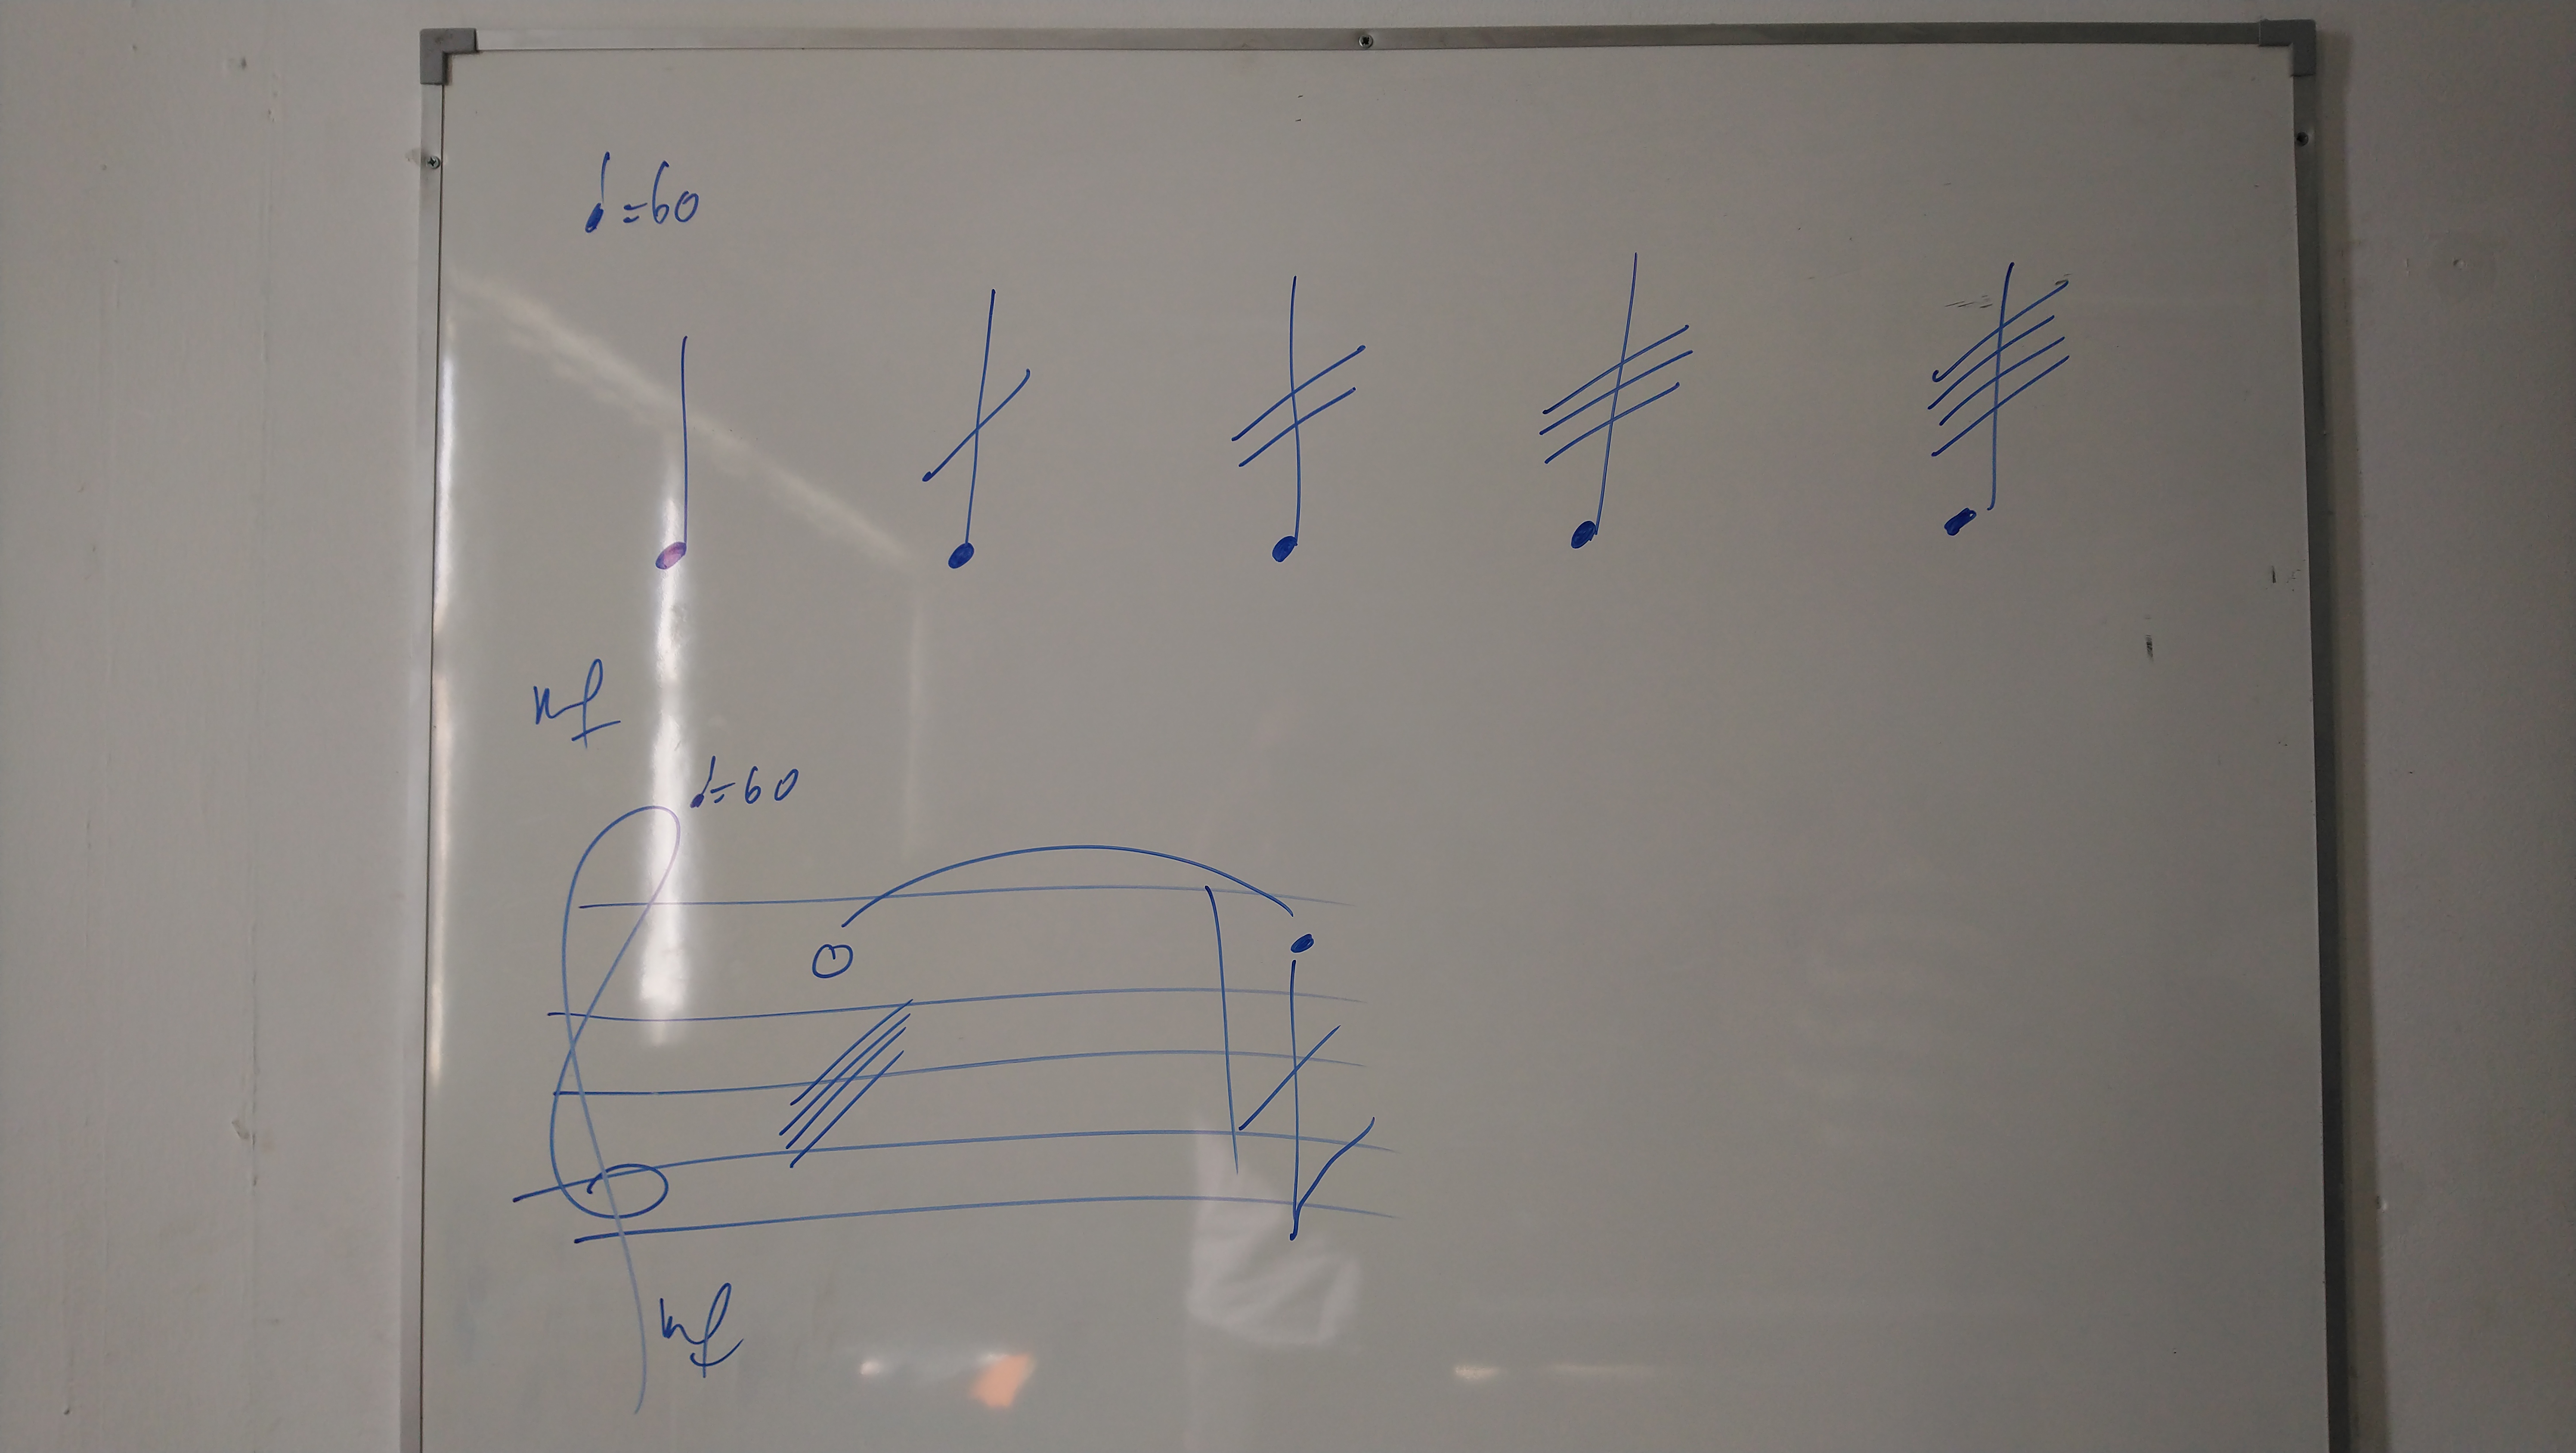 ♩=60
mf
♩=60
mf